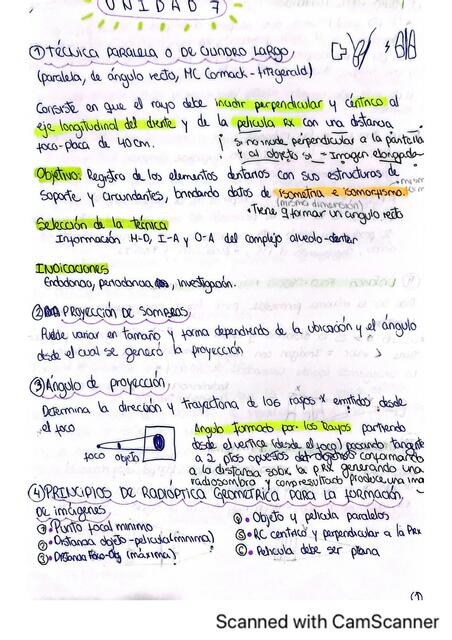 UNIDAD 7
① TÉCNICA PARALELA O DE CILINDRO LARGO
(paralela, de ángulo recto, MC Cormack - Fitzgerald)
Consiste en que el rayo debe incidir perpendicular y céntrico al
eje longitudinal del diente y de la película RX con una distancia
foco-placa de 40 cm.
si no incide perpendicular a la pantalla
y al objeto si _ = Imagen elongada
Objetivo: Registro de los elementos dentarios con sus estructuras de
soporte y circundantes, brindando datos de isometría e isomorfismo.
(misma dimensión)
• Tiene q formar un angulo recto
Selección de la técnica
Información H-D, I-A y O-A del complejo alveolo-dentar
INDICACIONES
Endodoncia, periodoncia, investigación.
② PROYECCIÓN DE SOMBRAS
Puede variar en tamaño y forma dependiendo de la ubicación y el ángulo
desde el cual se generó la proyección
③ Ángulo de proyección
Determina la dirección y trayectoria de los rayos x emitidos desde
el foco
foco objeto
Angulo formado por los Rayos partiendo
desde el vertice (desde el foco) pasando tangente
a 2 ptos opuestos del objeto conformando
a la distancia sobre la pRX generando una
radiosombra y como resultado produce una ima
④ PRINCIPIOS DE RADIÓPTICA GEOMETRICA PARA LA FORMACIÓN
DE IMÁGENES
① • Punto focal minimo
② • Distancia objeto-película (minima)
③ • Distancia Foco-Obj (máxima)
④ • Objeto y película paralelos
⑤ • RC centrico y perpendicular a la PRX
⑥ • Película debe ser plana
(1)
Scanned with CamScanner